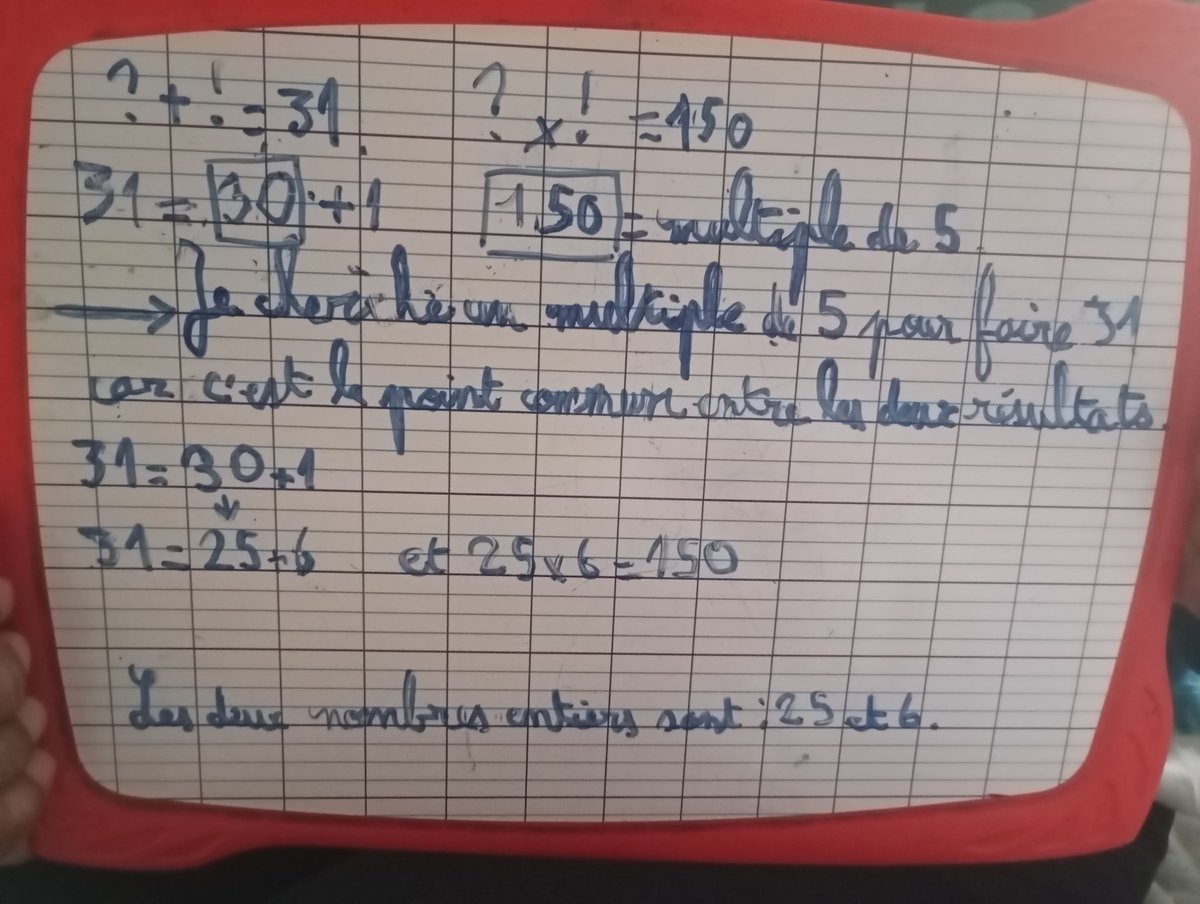 ? + ! = 31 ? x ! = 150
31 = 30 + 1 150 = multiple de 5
→ Je cherche un multiple de 5 pour faire 31
car c'est le point commun entre les deux résultats.
31 = 30 + 1
↓
31 = 25 + 6 et 25 x 6 = 150
Les deux nombres entiers sont : 25 et 6.